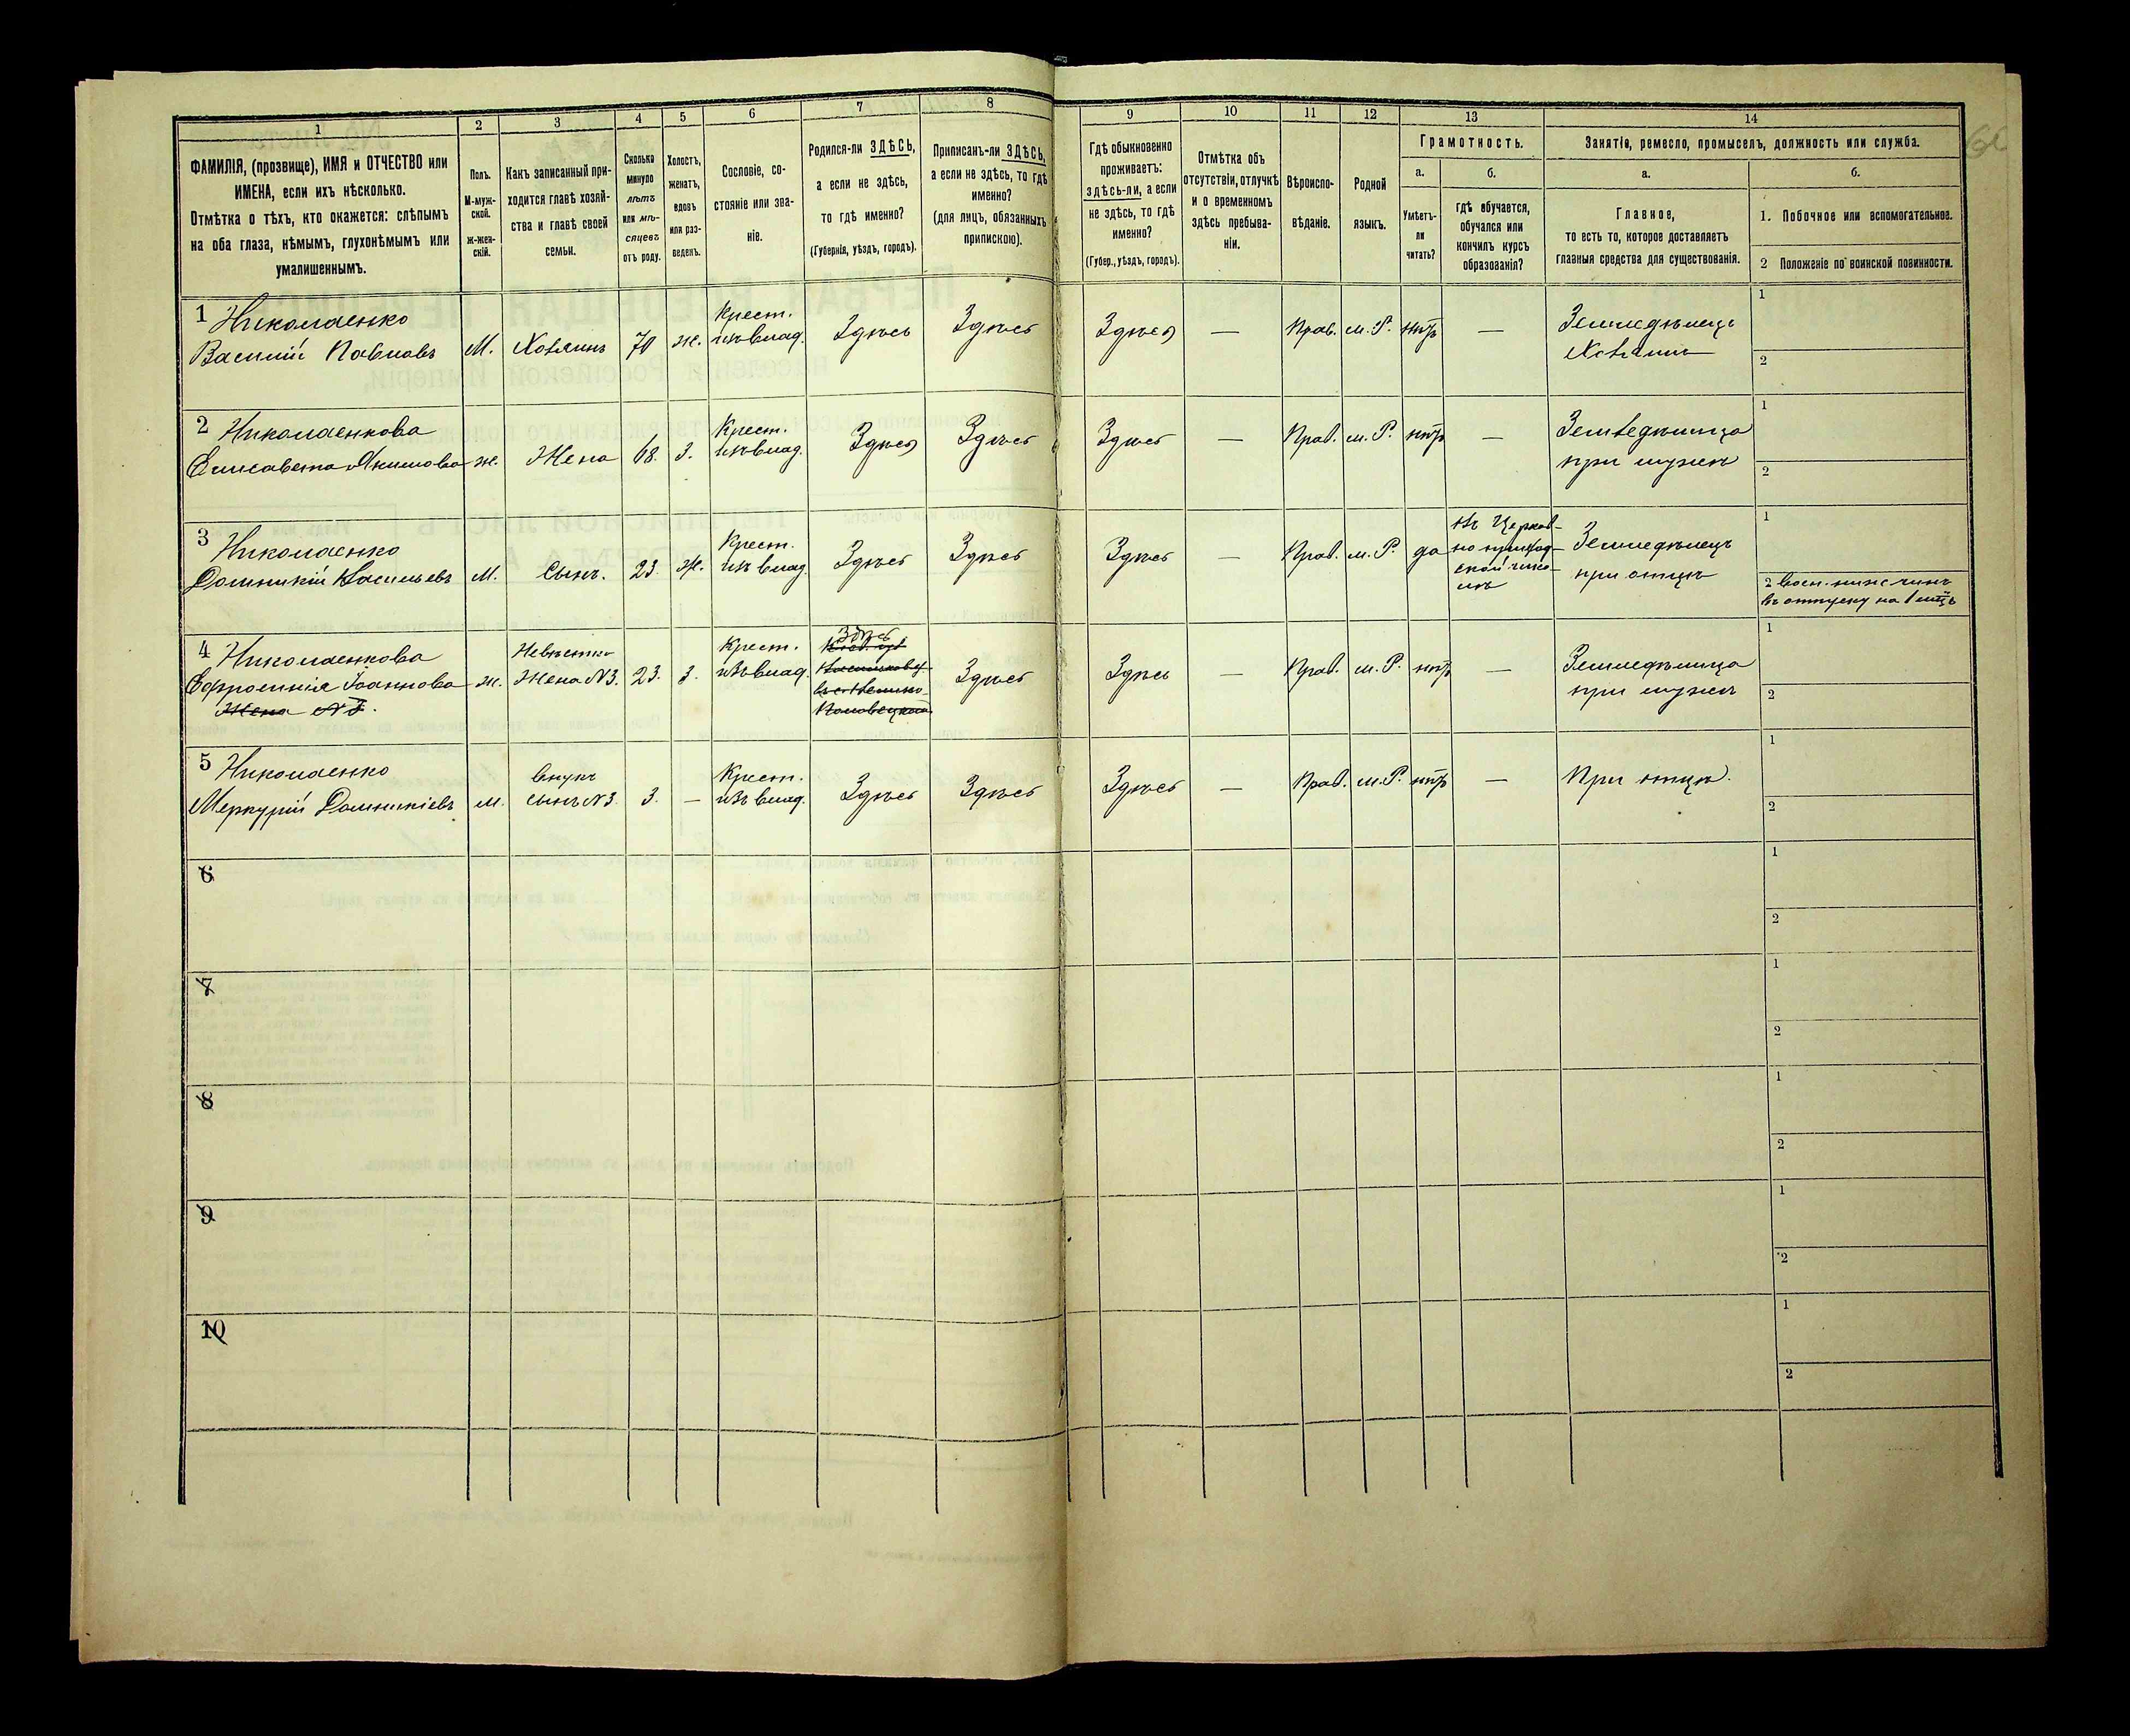 1
2
3
4
5
6
7
8
9
10
11
12
13
14
ФАМИЛІЯ, (прозвище), ИМЯ и ОТЧЕСТВО или
ИМЕНА, если ихъ нѣсколько.
Отмѣтка о тѣхъ, кто окажется: слѣпымъ
на оба глаза, нѣмымъ, глухонѣмымъ или
умалишеннымъ.
Полъ.
М-муж-
ской.
Ж-жен-
скій.
Какъ записанный при-
ходится главѣ хозяй-
ства и главѣ своей
семьи.
Сколько
минуло
лѣтъ
или мѣ-
сяцевъ
отъ роду.
Холостъ,
женатъ,
вдовъ
или раз-
веденъ.
Сословіе, со-
стояніе или зва-
ніе.
Родился-ли ЗДѢСЬ,
а если не здѣсь,
то гдѣ именно?
(Губернія, уѣздъ, городъ).
Приписанъ-ли ЗДѢСЬ,
а если не здѣсь, то гдѣ
именно?
(для лицъ, обязанныхъ
припискою).
Гдѣ обыкновенно
проживаетъ:
здѣсь-ли, а если
не здѣсь, то гдѣ
именно?
(Губер., уѣздъ, городъ).
Отмѣтка объ
отсутствіи, отлучкѣ
и о временномъ
здѣсь пребыва-
ніи.
Вѣроиспо-
вѣданіе.
Родной
языкъ.
Грамотность.
а.
Умѣетъ-
ли
читать?
б.
гдѣ обучается,
обучался или
кончилъ курсъ
образованія?
Занятіе, ремесло, промыселъ, должность или служба.
а.
Главное,
то есть то, которое доставляетъ
главныя средства для существованія.
б.
1. Побочное или вспомогательное.
2 Положеніе по воинской повинности.
1 Николаенко
Василій Павловъ
М.
Хозяинъ
70
ж.
Крест.
изъ влад.
Здѣсь
Здѣсь
Здѣсь
—
Прав.
м. Р.
нѣтъ
—
Земледѣлецъ
Хозяинъ
1
2
2 Николаенкова
Елисавета Якимова
ж.
Жена
68.
З.
Крест.
изъ влад.
Здѣсь
Здѣсь
Здѣсь
—
Прав.
м. Р.
нѣтъ
—
Земледѣлица
при мужѣ
1
2
3 Николаенко
Доминикій Васильевъ
М.
Сынъ.
23
Ж.
Крест.
изъ влад.
Здѣсь
Здѣсь
Здѣсь
—
Прав.
м. Р.
да
въ Церков-
но приход-
ской шко-
лѣ
Земледѣлецъ
при отцѣ
1
2 Воен. ниж. чинъ
въ отпуску на 1 мѣц.
4 Николаенкова
Ефросинія Іоаннова
Жена №3.
ж.
Невѣстка
Жена №3.
23.
З.
Крест.
изъ влад.
Здѣсь
Здѣсь
Здѣсь
—
Прав.
м. Р.
нѣтъ
—
Земледѣлица
при мужѣ
1
2
5 Николаенко
Меркурій Доминикіевъ
м.
Внукъ
сынъ №3.
3.
—
Крест.
изъ влад.
Здѣсь
Здѣсь
Здѣсь
—
Прав.
м. Р.
нѣтъ
—
При отцѣ.
1
2
6
1
2
7
1
2
8
1
2
9
1
2
10
1
2